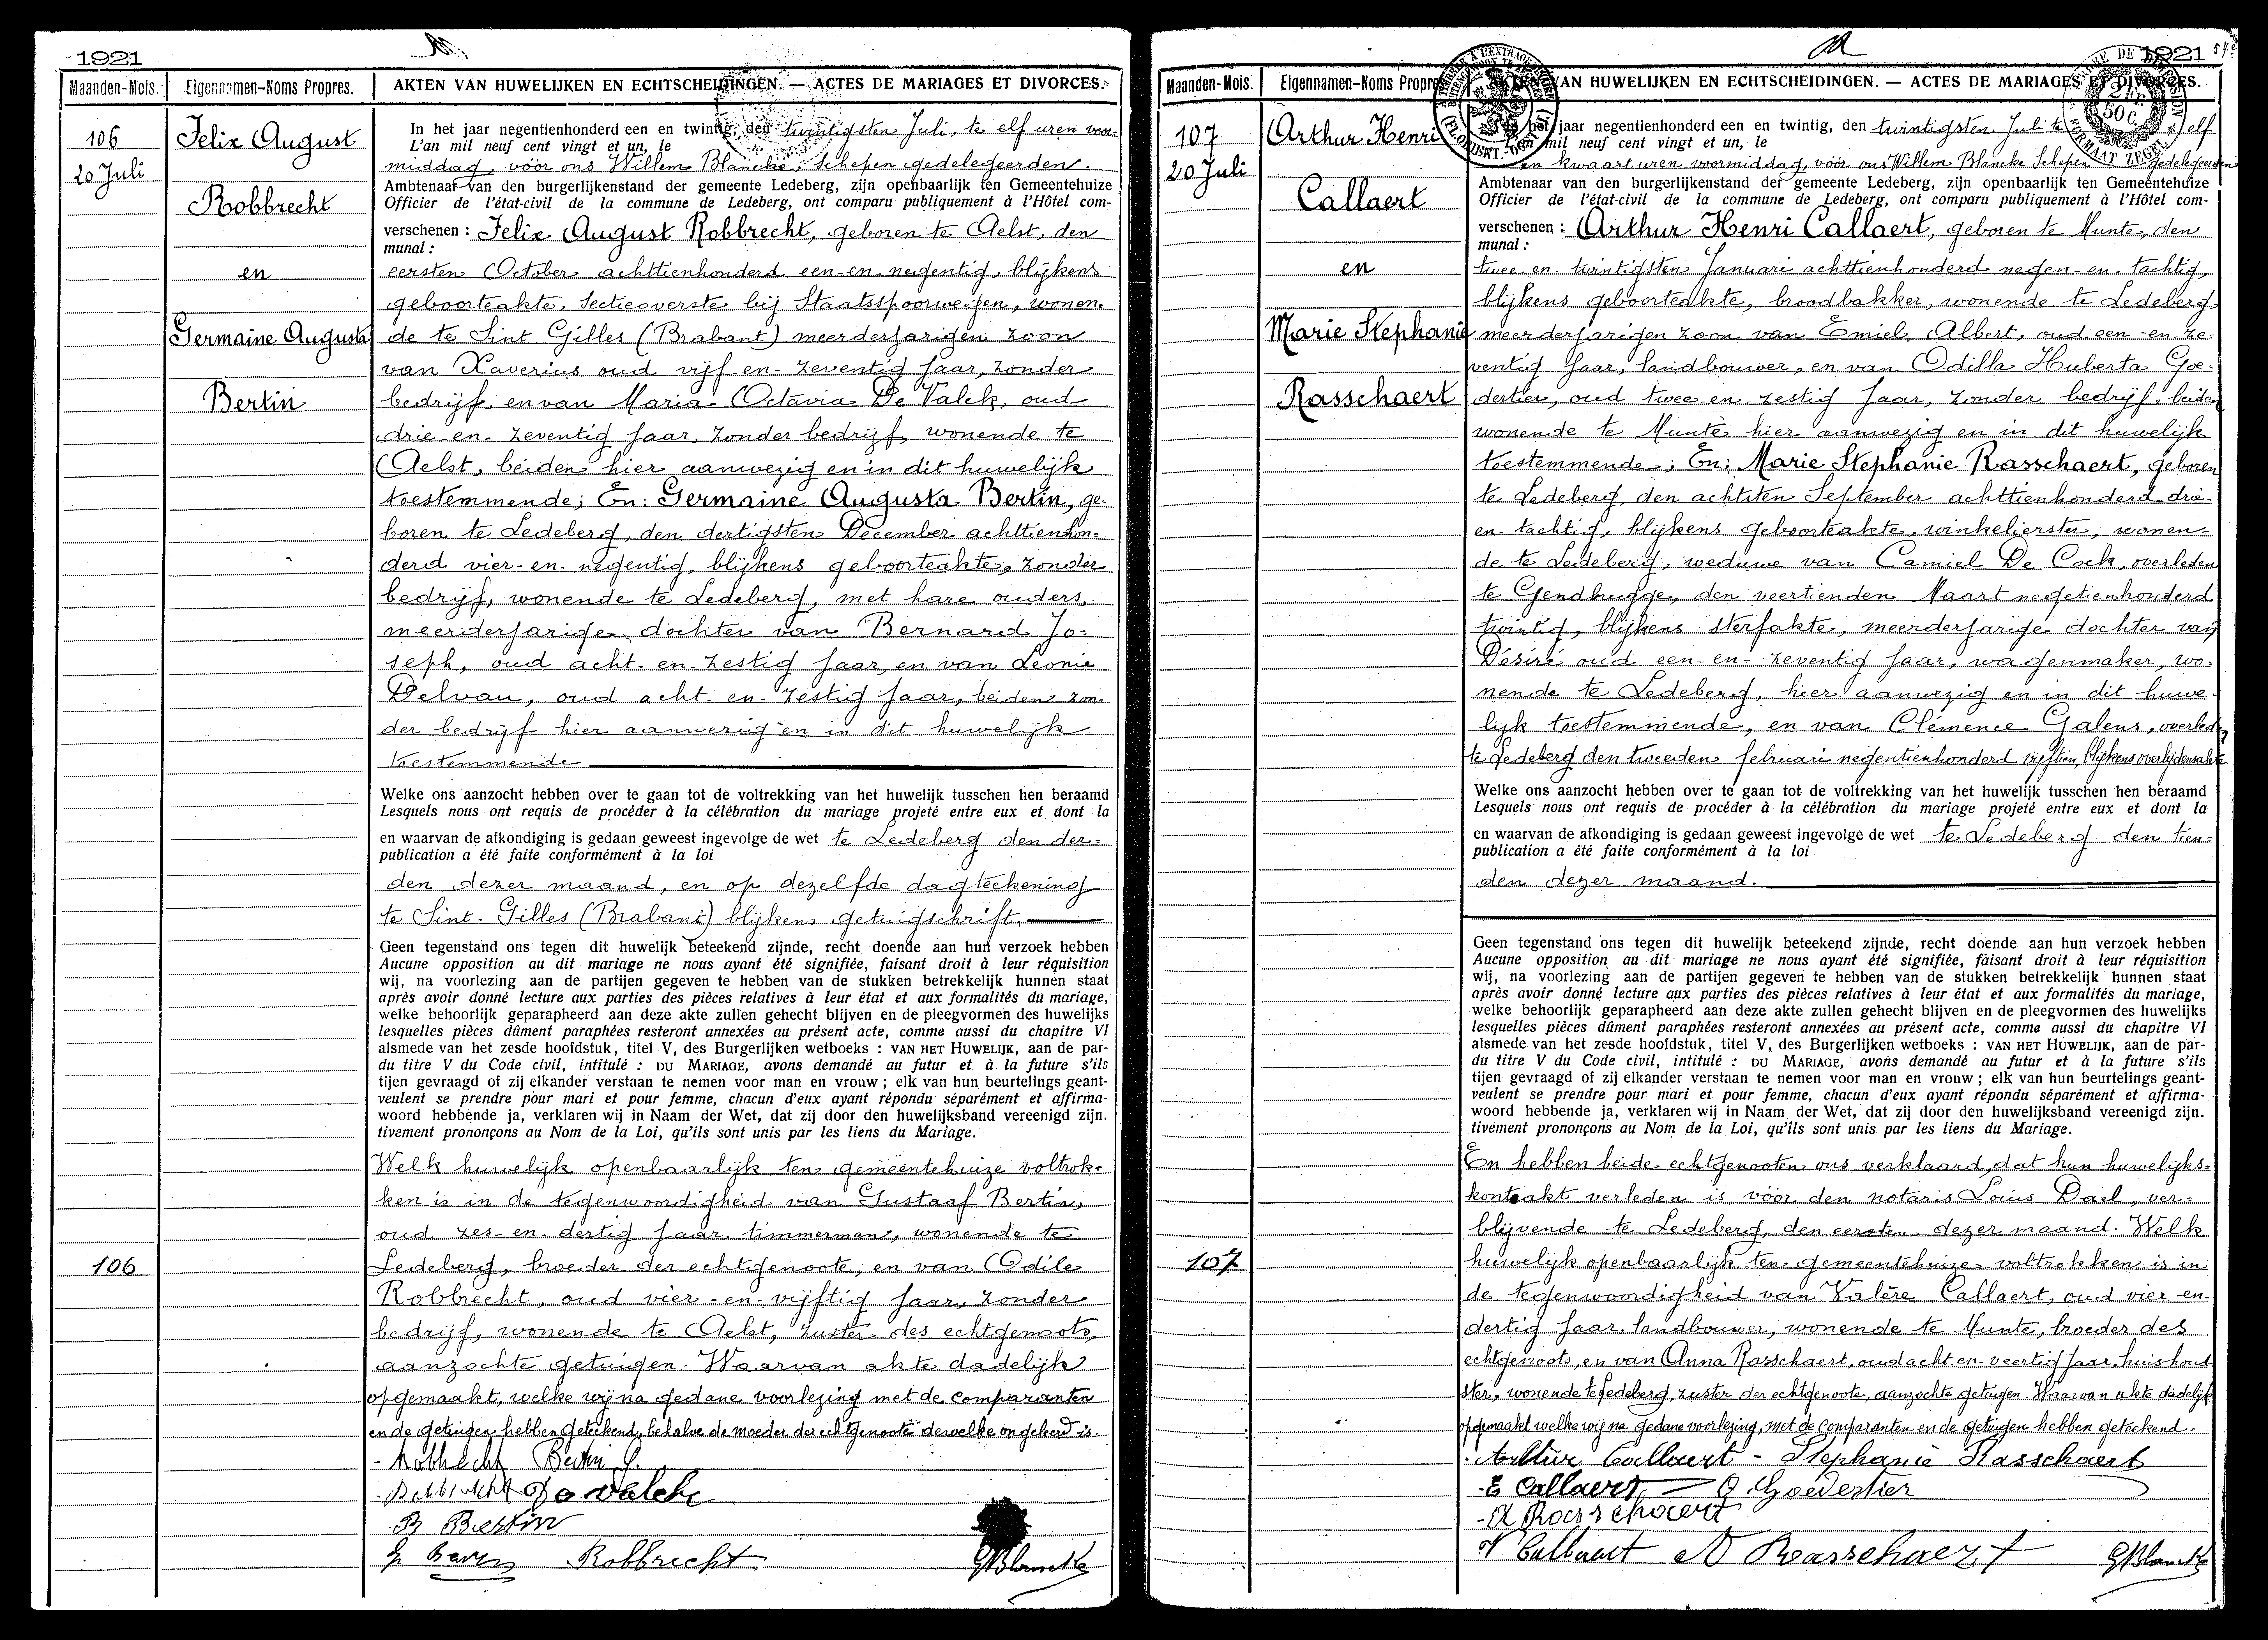 1921
Maanden-Mois. Eigennamen-Noms Propres. AKTEN VAN HUWELIJKEN EN ECHTSCHEIDINGEN. — ACTES DE MARIAGES ET DIVORCES.
106
20 Juli
Felix August
Robbrecht
en
Germaine Augusta
Bertin
In het jaar negentienhonderd een en twintig, den twintigsten Juli, te elf uren voor-
L'an mil neuf cent vingt et un, le
middag, vóór ons Willem Blancke, Schepen gedelegeerden
Ambtenaar van den burgerlijkenstand der gemeente Ledeberg, zijn openbaarlijk ten Gemeentehuize
Officier de l'état-civil de la commune de Ledeberg, ont comparu publiquement à l'Hôtel com-
verschenen : Felix August Robbrecht, geboren te Aelst, den
munal :
eersten October achttienhonderd een-en-negentig, blijkens
geboorteakte, Sectieoverste bij Staatsspoorwegen, wonen-
de te Sint Gilles (Brabant) meerderjarigen zoon
van Xaverius oud vijf-en-zeventig jaar, zonder
bedrijf en van Maria Octavia De Valck, oud
drie-en-zeventig jaar, zonder bedrijf, wonende te
Aelst, beiden hier aanwezig en in dit huwelijk
toestemmende; En: Germaine Augusta Bertin, ge-
boren te Ledeberg, den dertigsten December achttienhon-
derd vier-en-negentig, blijkens geboorteakte, zonder
bedrijf, wonende te Ledeberg, met hare ouders,
meerderjarige dochter van Bernard Jo-
seph, oud acht-en-zestig jaar, en van Leonie
Delvau, oud acht-en-zestig jaar, beiden zon-
der bedrijf hier aanwezig en in dit huwelijk
toestemmende
Welke ons aanzocht hebben over te gaan tot de voltrekking van het huwelijk tusschen hen beraamd
Lesquels nous ont requis de procéder à la célébration du mariage projeté entre eux et dont la
en waarvan de afkondiging is gedaan geweest ingevolge de wet te Ledeberg den der-
publication a été faite conformément à la loi
den dezer maand, en op dezelfde dagteekening
te Sint-Gilles (Brabant) blijkens getuigschrift.
Geen tegenstand ons tegen dit huwelijk beteekend zijnde, recht doende aan hun verzoek hebben
Aucune opposition au dit mariage ne nous ayant été signifiée, faisant droit à leur réquisition
wij, na voorlezing aan de partijen gegeven te hebben van de stukken betrekkelijk hunnen staat
après avoir donné lecture aux parties des pièces relatives à leur état et aux formalités du mariage,
welke behoorlijk geparapheerd aan deze akte zullen gehecht blijven en de pleegvormen des huwelijks
lesquelles pièces dûment paraphées resteront annexées au présent acte, comme aussi du chapitre VI
alsmede van het zesde hoofdstuk, titel V, des Burgerlijken wetboeks : VAN HET HUWELIJK, aan de par-
du titre V du Code civil, intitulé : DU MARIAGE, avons demandé au futur et à la future s'ils
tijen gevraagd of zij elkander verstaan te nemen voor man en vrouw ; elk van hun beurtelings geant-
veulent se prendre pour mari et pour femme, chacun d'eux ayant répondu séparément et affirma-
woord hebbende ja, verklaren wij in Naam der Wet, dat zij door den huwelijksband vereenigd zijn.
tivement prononçons au Nom de la Loi, qu'ils sont unis par les liens du Mariage.
Welk huwelijk openbaarlijk ten gemeentehuize voltrok-
ken is in de tegenwoordigheid van Gustaaf Bertin,
oud zes-en-dertig jaar, timmerman, wonende te
106
Ledeberg, broeder der echtgenoote, en van Odile
Robbrecht, oud vier-en-vijftig jaar, zonder
bedrijf, wonende te Aelst, zuster des echtgenoots,
aanzochte getuigen. Waarvan akte dadelijk
opgemaakt, welke wij na gedane voorlezing met de comparanten
en de getuigen hebben geteekend, behalve de moeder der echtgenoote dewelke ongeleerd is.
- Robbrecht Bertin G.
- Robbrecht O De Valck
- B Bertin
Robbrecht GBlancke
1921
Maanden-Mois. Eigennamen-Noms Propres. AKTEN VAN HUWELIJKEN EN ECHTSCHEIDINGEN. — ACTES DE MARIAGES ET DIVORCES.
2 Fr. 50 C.
FORMAAT ZEGEL
107
20 Juli
Arthur Henri
Callaert
en
Marie Stephanie
Rasschaert
In het jaar negentienhonderd een en twintig, den twintigsten Juli te elf
L'an mil neuf cent vingt et un, le
en kwaart uren voormiddag, vóór ons Willem Blancke Schepen gedelegeerden
Ambtenaar van den burgerlijkenstand der gemeente Ledeberg, zijn openbaarlijk ten Gemeentehuize
Officier de l'état-civil de la commune de Ledeberg, ont comparu publiquement à l'Hôtel com-
verschenen : Arthur Henri Callaert, geboren te Munte, den
munal :
twee-en-twintigsten Januari achttienhonderd negen-en-tachtig,
blijkens geboorteakte, broodbakker, wonende te Ledeberg
meerderjarigen zoon van Emiel Albert, oud een-en-ze-
ventig jaar, landbouwer, en van Odilla Huberta Goe-
dertier, oud twee-en-zestig jaar, zonder bedrijf, beiden
wonende te Munte hier aanwezig en in dit huwelijk
toestemmende; En: Marie Stephanie Rasschaert, geboren
te Ledeberg, den achtsten September achttienhonderd drie-
en-tachtig, blijkens geboorteakte, winkelierster, wonen-
de te Ledeberg, weduwe van Camiel De Cock, overleden
te Gendbrugge, den veertienden Maart negetienhonderd
twintig, blijkens sterfakte, meerderjarige dochter van
Désiré oud een-en-zeventig jaar, wagenmaker, wo-
nende te Ledeberg, hier aanwezig en in dit huwe-
lijk toestemmende, en van Clémence Galens, overleden
te Ledeberg den tweeden februari negentienhonderd vijftien, blijkens overlijdensakte
Welke ons aanzocht hebben over te gaan tot de voltrekking van het huwelijk tusschen hen beraamd
Lesquels nous ont requis de procéder à la célébration du mariage projeté entre eux et dont la
en waarvan de afkondiging is gedaan geweest ingevolge de wet te Ledeberg den tien-
publication a été faite conformément à la loi
den dezer maand.
Geen tegenstand ons tegen dit huwelijk beteekend zijnde, recht doende aan hun verzoek hebben
Aucune opposition au dit mariage ne nous ayant été signifiée, faisant droit à leur réquisition
wij, na voorlezing aan de partijen gegeven te hebben van de stukken betrekkelijk hunnen staat
après avoir donné lecture aux parties des pièces relatives à leur état et aux formalités du mariage,
welke behoorlijk geparapheerd aan deze akte zullen gehecht blijven en de pleegvormen des huwelijks
lesquelles pièces dûment paraphées resteront annexées au présent acte, comme aussi du chapitre VI
alsmede van het zesde hoofdstuk, titel V, des Burgerlijken wetboeks : VAN HET HUWELIJK, aan de par-
du titre V du Code civil, intitulé : DU MARIAGE, avons demandé au futur et à la future s'ils
tijen gevraagd of zij elkander verstaan te nemen voor man en vrouw ; elk van hun beurtelings geant-
veulent se prendre pour mari et pour femme, chacun d'eux ayant répondu séparément et affirma-
woord hebbende ja, verklaren wij in Naam der Wet, dat zij door den huwelijksband vereenigd zijn.
tivement prononçons au Nom de la Loi, qu'ils sont unis par les liens du Mariage.
En hebben beide echtgenooten ons verklaard, dat hun huwelijks-
kontrakt verleden is vóór den notaris Loius Dael, ver-
blijvende te Ledeberg, den eersten dezer maand. Welk
107
huwelijk openbaarlijk ten gemeentehuize voltrokken is in
de tegenwoordigheid van Valère Callaert, oud vier-en-
dertig jaar, landbouwer, wonende te Munte, broeder des
echtgenoots, en van Anna Rasschaert, oud acht-en-veertig jaar, huishoud-
ster, wonende te Ledeberg, zuster der echtgenoote, aanzochte getuigen. Waarvan akte dadelijk
opgemaakt welke wij na gedane voorlezing, met de comparanten en de getuigen hebben geteekend.
- Arthur Callaert - Stephanie Rasschaert
- E Callaert - O. Goedertier
- D Rasschaert
V Callaert A Rasschaert GBlancke